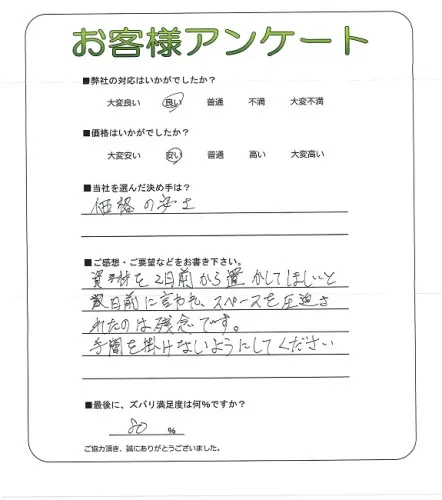 お客様アンケート
■弊社の対応はいかがでしたか?
大変良い 良い 普通 不満 大変不満
■価格はいかがでしたか?
大変安い 安い 普通 高い 大変高い
■当社を選んだ決め手は?
価格の安さ
■ご感想・ご要望などをお書き下さい。
資材を2日前から置かしてほしいと
数日前に言われ、スペースを圧迫さ
れたのは残念です。
手間を掛けないようにしてください
■最後に、ズバリ満足度は何%ですか?
80 %
ご協力頂き、誠にありがとうございました。